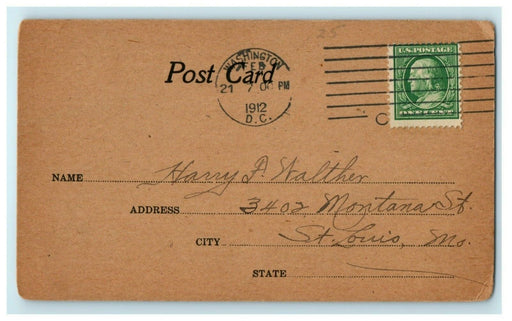 25
WASHINGTON
FEB
21 7 00 PM
1912
D.C.
Post Card
U.S. POSTAGE
ONE CENT
C
NAME Harry P. Walther
ADDRESS 3402 Montana St.
CITY St. Louis, Mo.
STATE